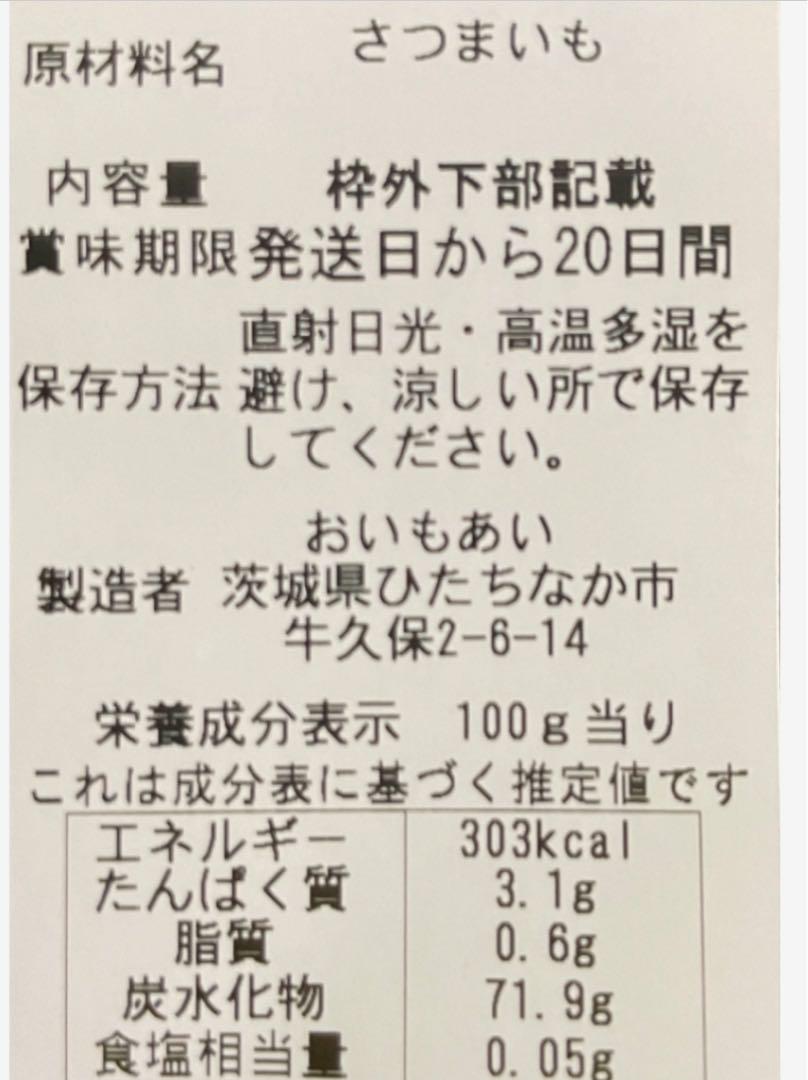 原材料名 さつまいも
内容量 枠外下部記載
賞味期限 発送日から20日間
直射日光・高温多湿を
保存方法 避け、涼しい所で保存
してください。
おいもあい
製造者 茨城県ひたちなか市
牛久保2-6-14
栄養成分表示 100g当り
これは成分表に基づく推定値です
エネルギー 303kcal
たんぱく質 3.1g
脂質 0.6g
炭水化物 71.9g
食塩相当量 0.05g